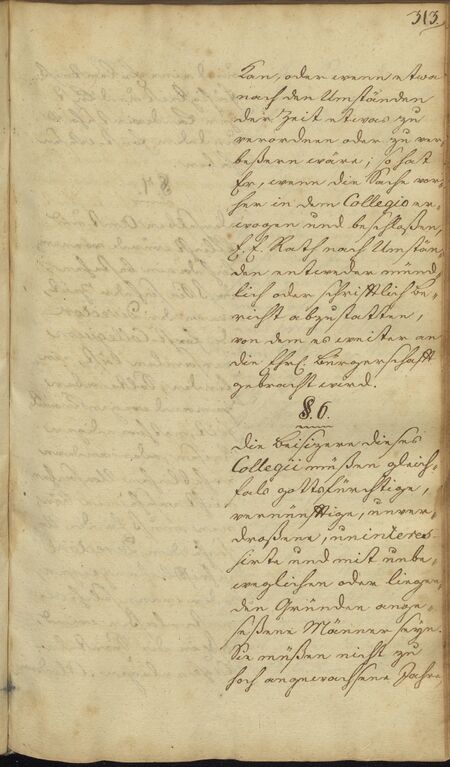 313.
Kan, oder wenn etwa
nach den Umständen
der Zeit etwas zu
verordnen oder zu ver-
beßern wäre; so hat
Er, wenn die Sache vor-
her in dem Collegio er-
wogen und beschloßen,
E. E. Rath nach Umstän-
den entweder münd-
lich oder schrifftlich Be-
richt abzustatten,
von dem es weiter an
die Ehrl. Bürgerschafft
gebracht wird.
§. 6.
Die Beisizere dieses
Collegii müßen gleich-
fals gottsfürchtige,
vernünfftige, unver-
droßene, uninteres-
sirte und mit unbe-
weglichen oder liegen-
den Gründen ange-
seßene Männer seyn.
Sie müßen nicht zu
hoch angewachsene Jahre,